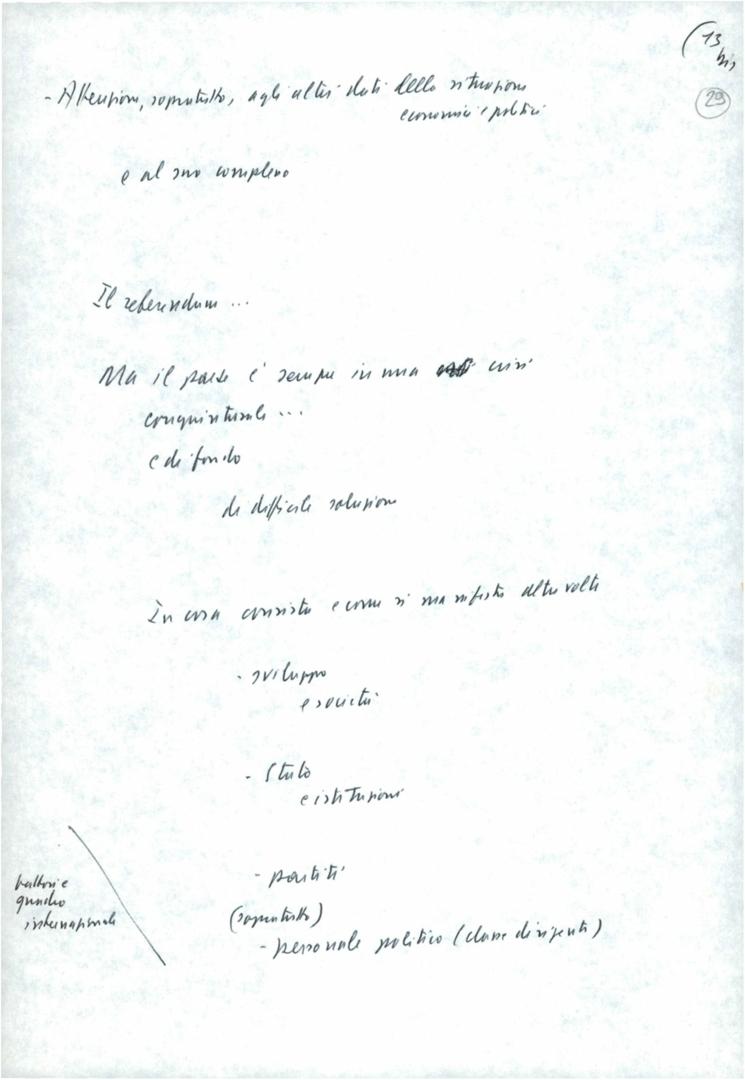 (13
bis
29
- Attenzione, soprattutto, agli altri dati della situazione
economici e politici
e al suo complesso
Il referendum ...
Ma il paese è sempre in una crisi
congiunturale ...
e di fondo
di difficile soluzione
In cosa consiste e come si manifesta altre volte
- sviluppo
e società
- Stato
e istituzioni
- partiti
(soprattutto)
- personale politico (classe dirigente)
fattori e
quadro
internazionale